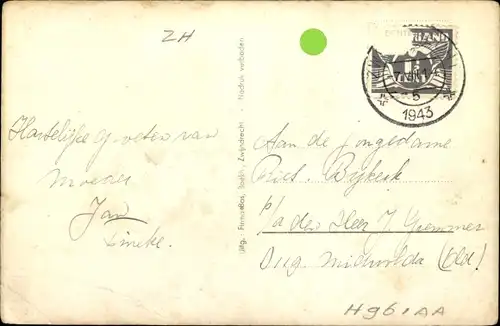 ZH
Hartelijke groeten van
Moeder
Jan
Tineke.
Uitg. Firma Bos, Boekh., Zwijndrecht - Nadruk verboden
1943
Aan de Jongedame
Riet. Bijkerk
p/a den Heer J. Gremmer
Burg. Midwolda (Old.)
H961AA